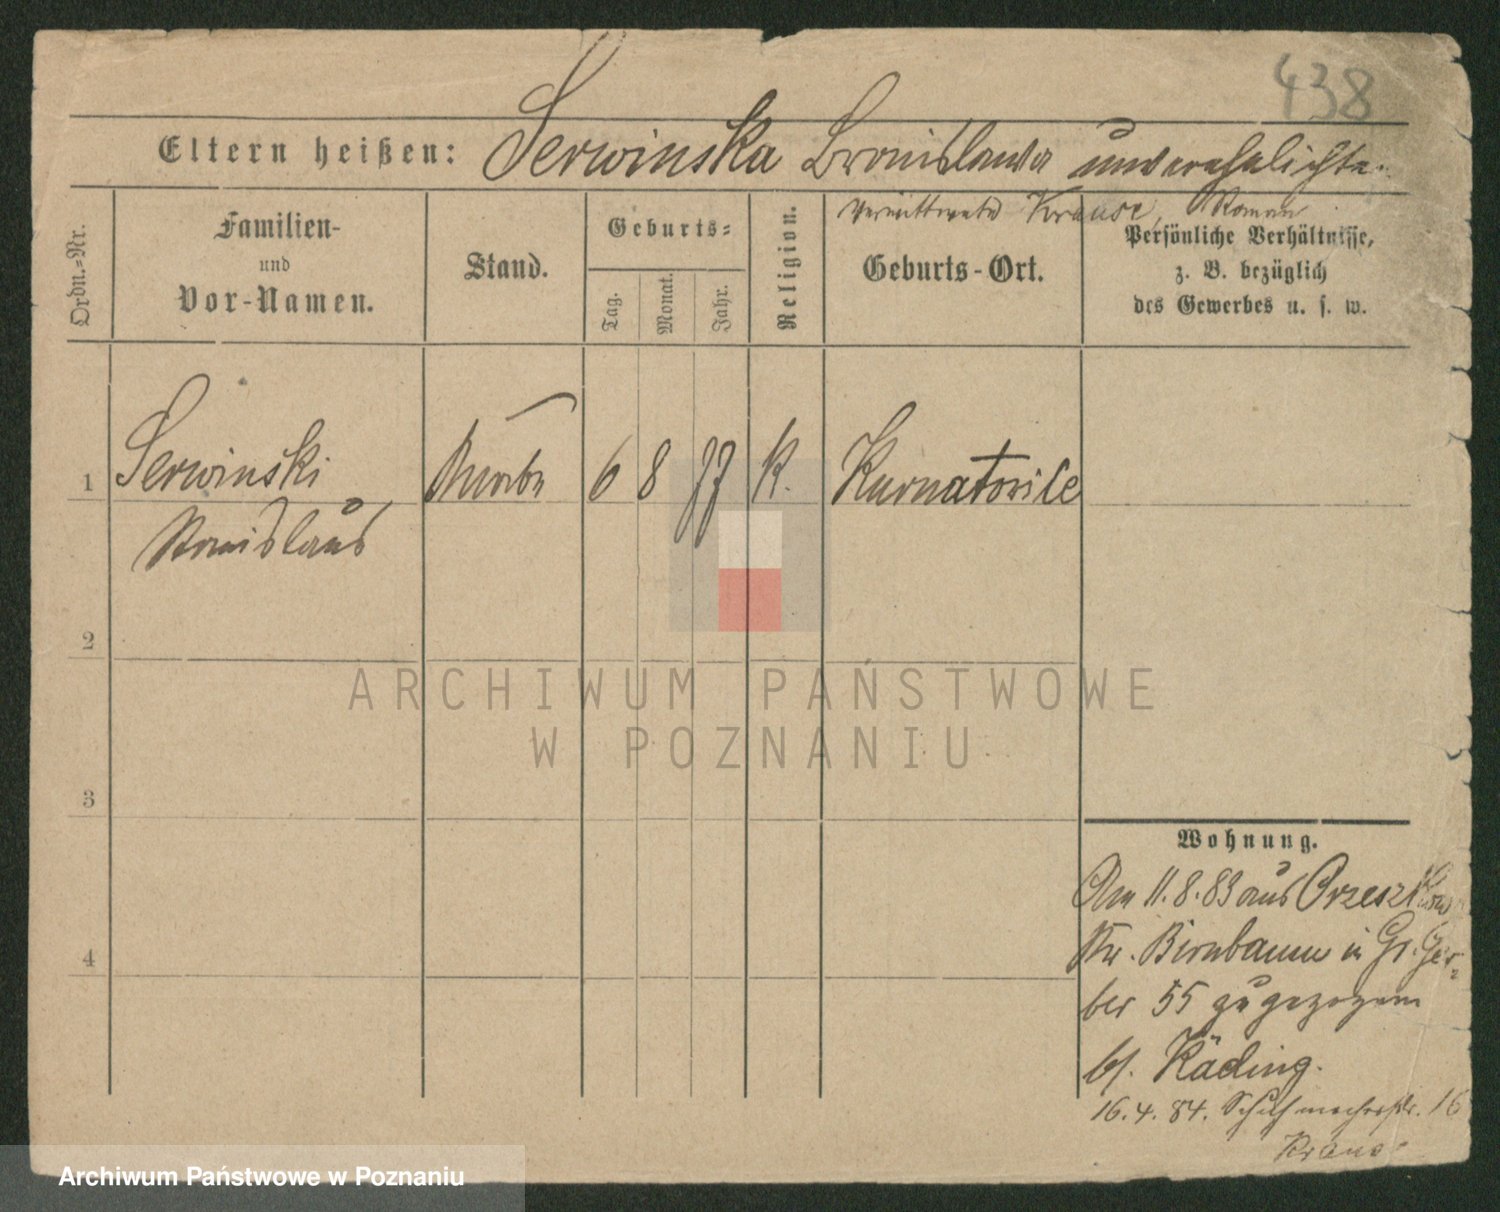 438
Eltern heißen: Serwinska Bronislawa unverehelichte
Krause, Roman
Ordn.-Nr.
Familien-
und
Vor-Namen.
Stand.
Geburts-
Tag.
Monat.
Jahr.
Religion.
Geburts-Ort.
Persönliche Verhältnisse,
z. B. bezüglich
des Gewerbes u. s. w.
1 Serwinski 6 8 77 K.
Stanislaus
2
3
4
Wohnung.
Am 11.8.83 aus Orzeszkowo
Kr. Birnbaum in Gr. Ger-
ber 55 zugezogen
bei Käding.
16.4.84. Schuhmacherstr. 16
Krause
ARCHIWUM PAŃSTWOWE
W POZNANIU
Archiwum Państwowe w Poznaniu